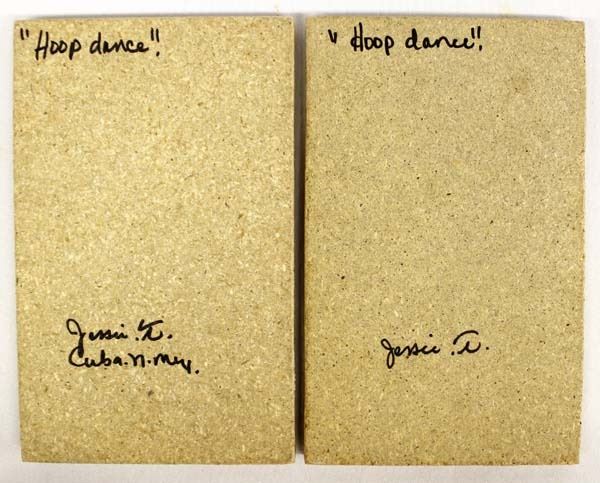 "Hoop dance".
Jessie.T.
Cuba.N.Mex.
" Hoop dance".
Jessie.T.